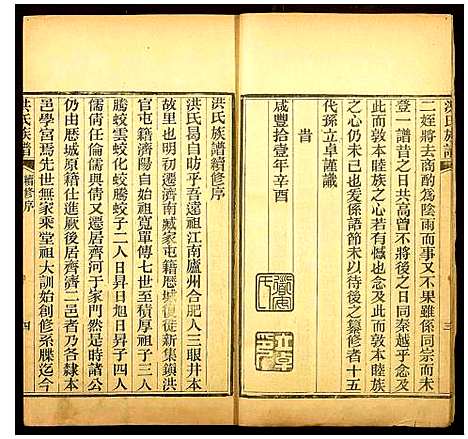 洪氏族譜
三
二姪將去商酌爲陰雨而又不果雖係同宗而未
登一譜昔之日共高曾不將後之日同秦越乎念及
此而敦本睦族之心于是不能已矣然此敦本睦族
之心仍未已也爰係語節末以待後之纂修者十五
代孫立卓謹識
旹
咸豐拾壹年辛酉
洪氏族譜續修序
洪氏曷自昉乎吾遠祖江南廬州合肥人三眼井本
故里也明初遷濟南臧家屯籍歷城復徙新集鎮洪
官屯籍濟陽自始祖寬單傳七世至積厚祖子三人
騰蛟雲蛟化蛟騰蛟子二人日昇日旭日昇子四人
儒倩任倫儒興倩又遷居齊河于家門然是時諸公
仍由歷城原籍仕進厥後居齊濟二邑者乃各隸本
邑學宮焉先世無家乘堂祖大訓始創修系牒迄今
洪氏族譜
續修序
四